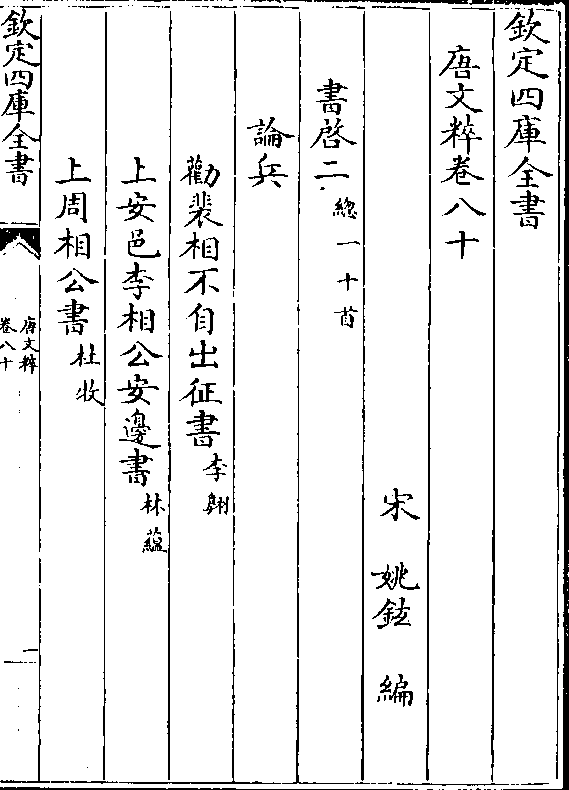 欽定四庫全書
唐文粹卷八十
宋 姚鉉 編
書啓二總一十首
論兵
勸裴相不自出征書李翺
上安邑李相公安邊書林藴
上周相公書杜牧
欽定四庫全書
唐文粹
卷八十
一